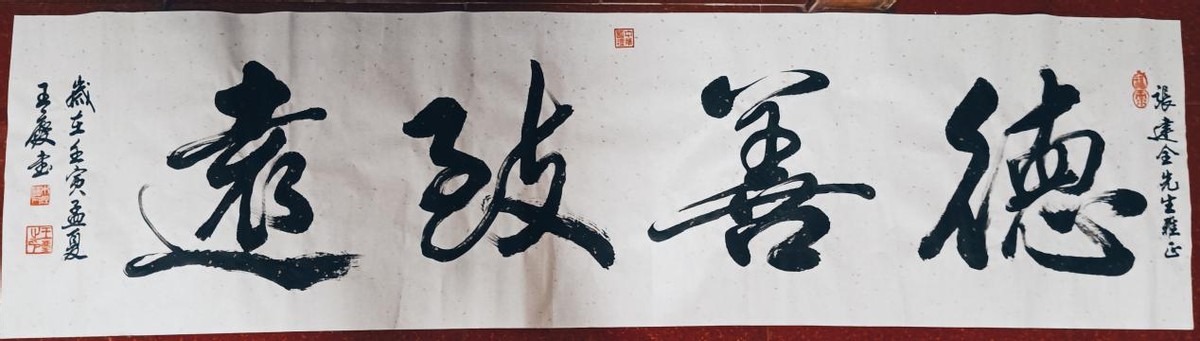 張建全先生雅正
德善致遠
歲在壬寅孟夏
王慶書